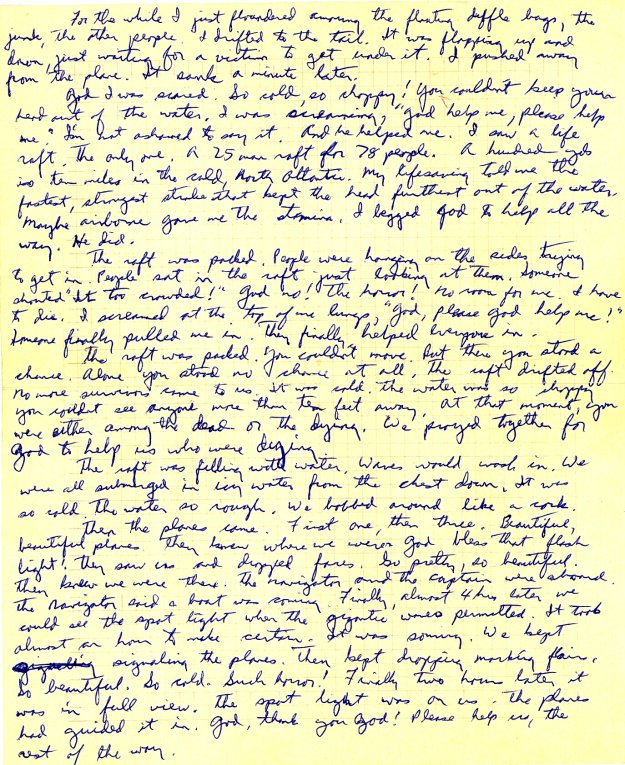 For the while I just floundered among the floating duffle bags, the
junk, the other people. I drifted to the tail. It was flopping up and
down, just waiting for a victim to get under it. I pushed away
from the plane. It sank a minute later.
God I was scared. So cold, so choppy! You couldn't keep your
head out of the water. I was screaming, "God help me, please help
me." I'm not ashamed to say it. And he helped me. I saw a life
raft. The only one. A 25 man raft for 78 people. A hundred yds
is ten miles in the cold, North Atlantic. My lifesaving told me the
fastest, strongest stroke that kept the head furthest out of the water.
Maybe airborne gave me the stamina. I begged God to help all the
way. He did.
The raft was packed. People were hanging on the sides trying
to get in. People sat in the raft just looking at them. Someone
shouted "It too crowded!" God no! The horror! No room for me. I have
to die. I screamed at the top of me lungs, "God, please God help me!"
Someone finally pulled me in. They finally helped everyone in.
The raft was packed. You couldn't move. But there you stood a
chance. Alone you stood no chance at all. The raft drifted off.
No more survivors came to us. It was cold. The water was so choppy
you couldnt see anyone more than ten feet away. At that moment, you
were either among the dead or the dying. We prayed together for
God to help us who were dying.
The raft was filling with water. Waves would wash in. We
were all submerged in icy water from the chest down. It was
so cold. The water so rough. We bobbed around like a cork.
Then the planes came. First one, then three. Beautiful,
beautiful planes. They knew where we were God bless that flash
light! They saw us and dropped flares. So pretty, so beautiful.
They knew we were there. The navigator and the captain were aboard.
The navigator said a boat was coming. Finally, almost 4 hrs later we
could see the spot light when the gigantic waves permitted. It took
almost an hour to make certain. It was coming. We kept
signaling the planes. They kept dropping marking flares.
So beautiful. So cold. Such horror! Finally two hours later it
was in full view. The spot light was on us. The planes
had guided it in. God, thank you God! Please help us, the
rest of the way.